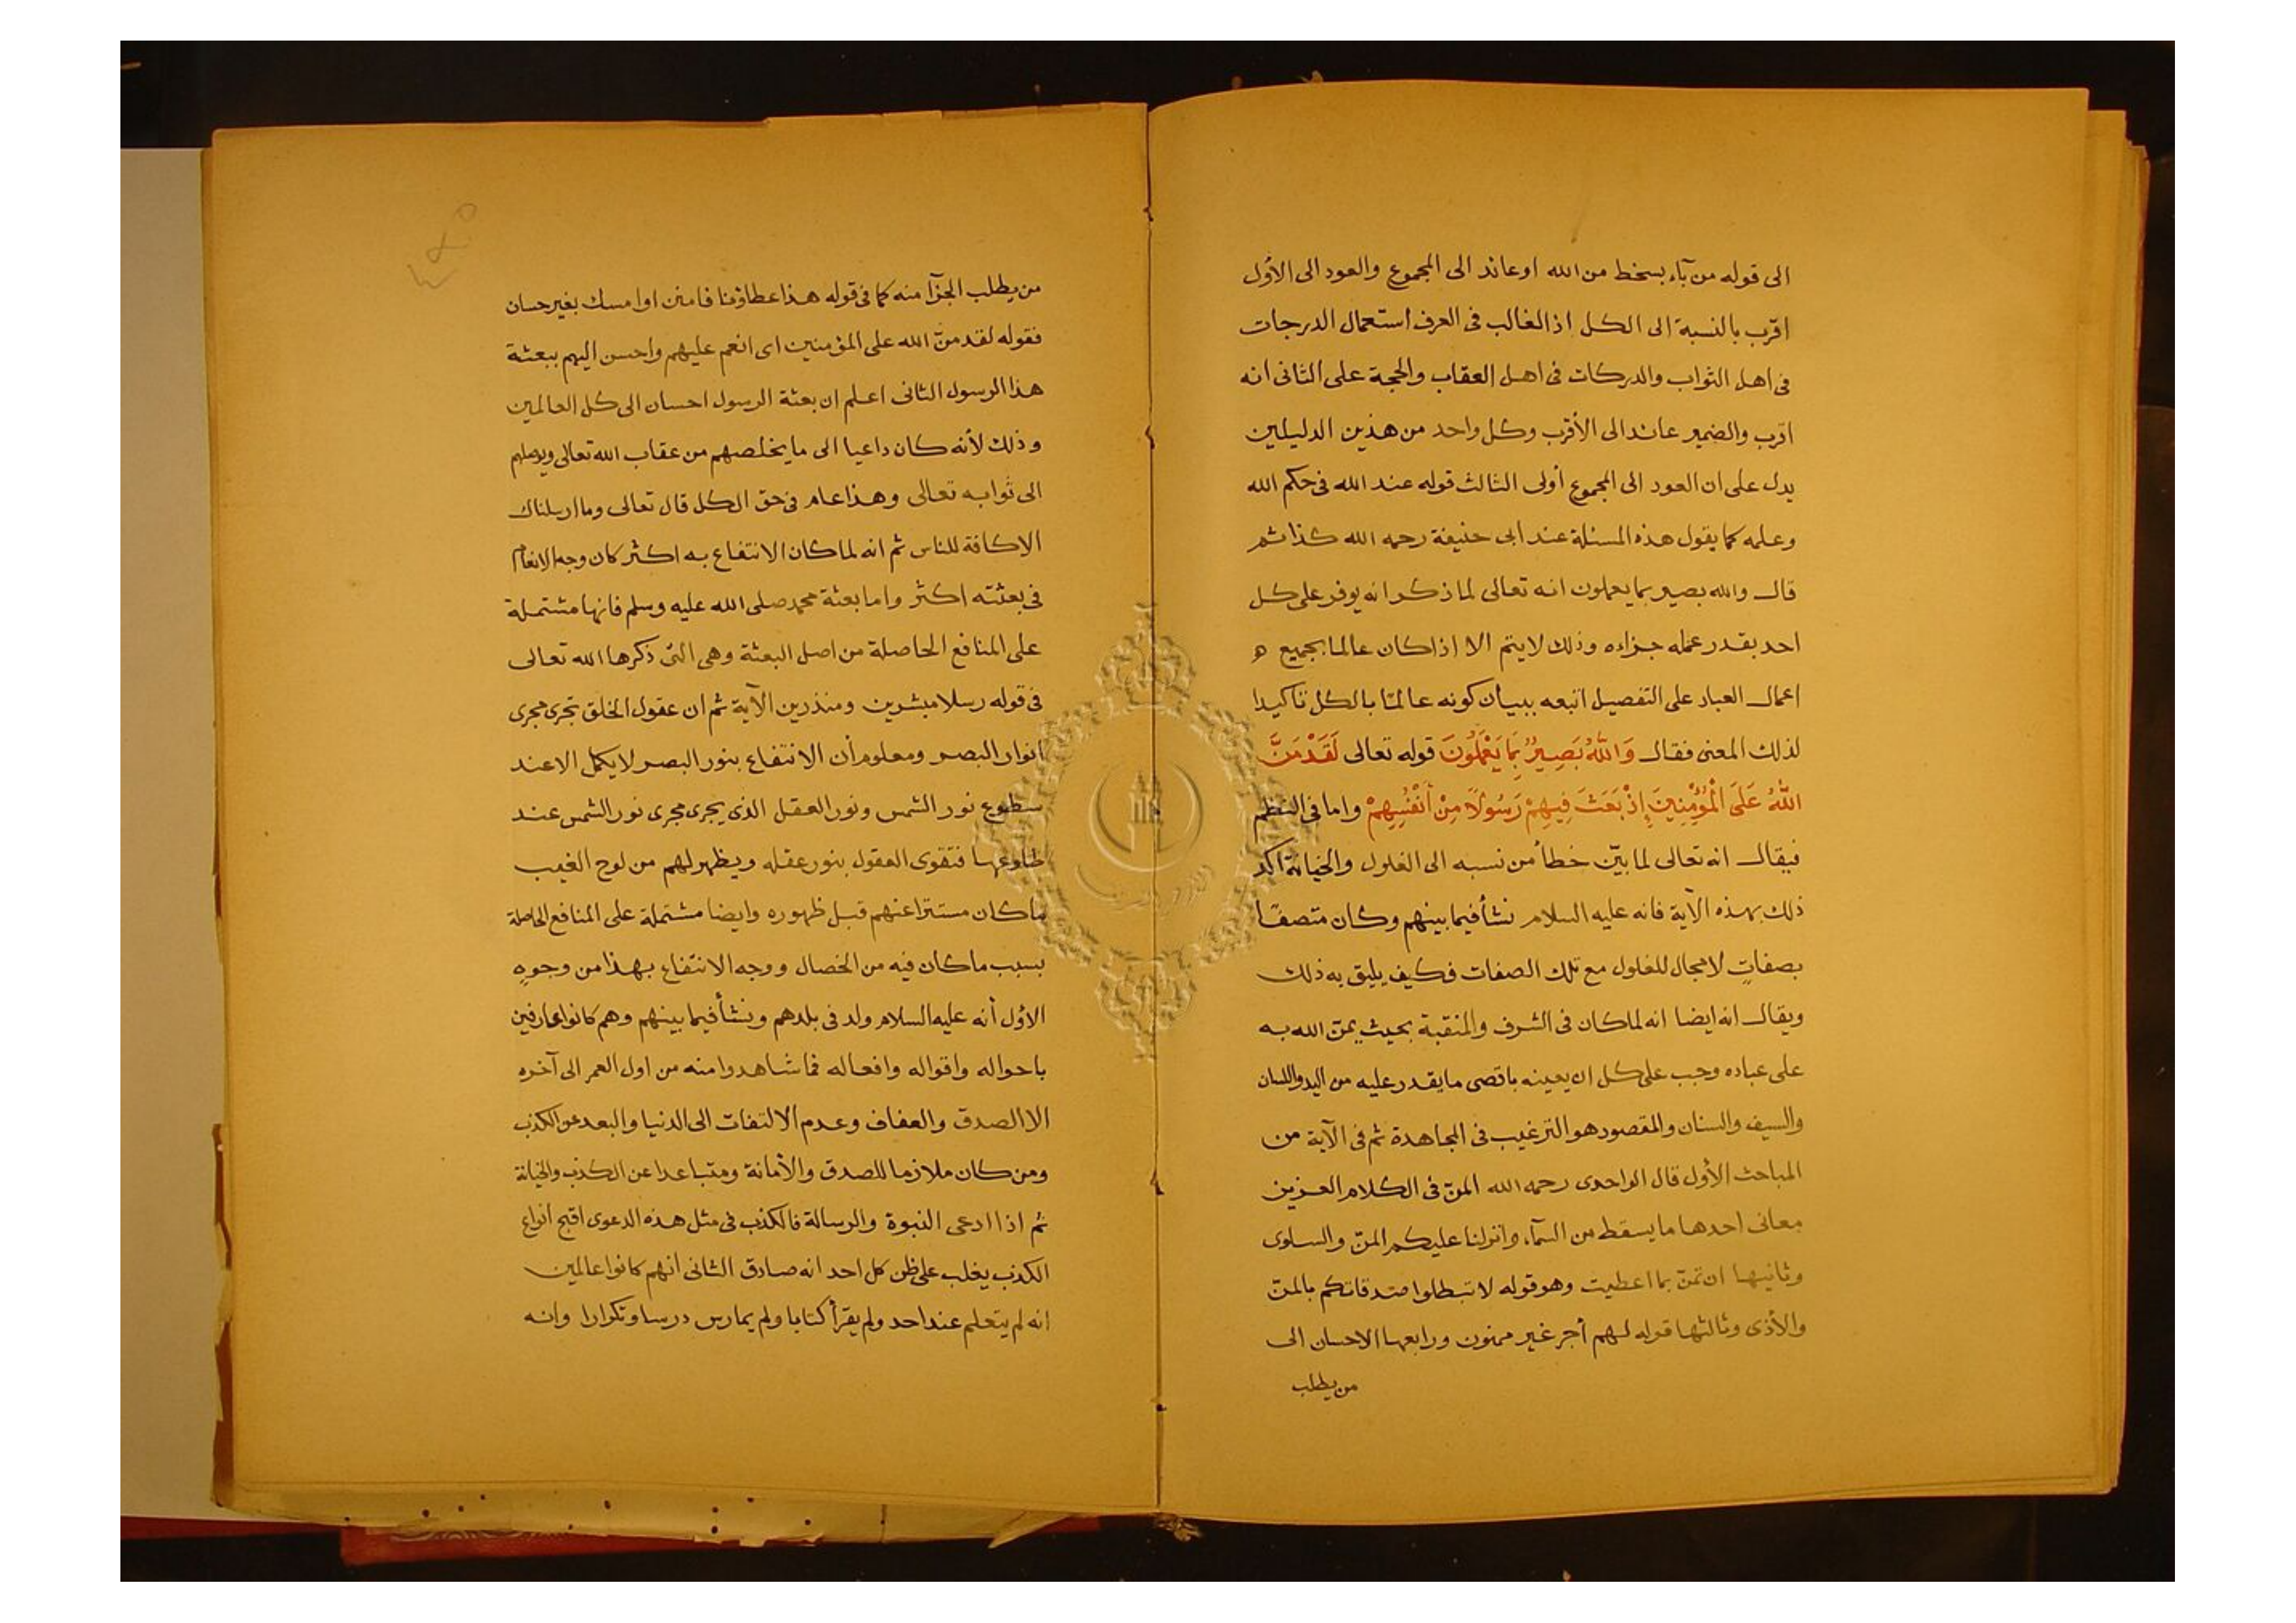 الى قوله من بآء بسخط من الله او عائد الى المجموع والعود الى الأول
اقرب بالنسبة الى الكل اذ الغالب فى العرف استعمال الدرجات
فى اهل الثواب والدركات فى اهل العقاب والحجة على الثانى انه
اقرب والضمير عائد الى الأقرب وكل واحد من هذين الدليلين
يدل على ان العود الى المجموع أولى الثالث قوله عند الله فى حكم الله
وعلمه كما يقول هذه المسئلة عند ابى حنيفة رحمه الله كذا ثم
قال والله بصير بما يعملون انه تعالى لما ذكر انه يوفر على كل
احد بقدر عمله جزاءه وذلك لا يتم الا اذا كان عالما بجميع
اعمال العباد على التفصيل اتبعه ببيان كونه عالمًا بالكل تاكيدا
لذلك المعنى فقال وَاللّٰهُ بَصِيرٌ بِمَا يَعْمَلُونَ قوله تعالى لَقَدْ مَنَّ
اللّٰهُ عَلَى الْمُؤْمِنِينَ إِذْ بَعَثَ فِيهِمْ رَسُولًا مِنْ أَنْفُسِهِمْ واما فى النظم
فيقال انه تعالى لما بيّن خطأ من نسبه الى الغلول والخيانة اكد
ذلك بهذه الآية فانه عليه السلام نشأ فيما بينهم وكان متصفًا
بصفاتٍ لا مجال للغلول مع تلك الصفات فكيف يليق به ذلك
ويقال انه ايضا انه لما كان فى الشرف والمنقبة بحيث يمنّ الله به
على عباده وجب على كل ان يعينه باقصى ما يقدر عليه من اليد واللسان
والسيف والسنان والمقصود هو الترغيب فى المجاهدة ثم فى الآية من
المباحث الأول قال الواحدى رحمه الله المنّ فى الكلام العزيز
معانى احدها ما يسقط من السمآء وانزلنا عليكم المنّ والسلوى
وثانيها ان تمنّ بما اعطيت وهو قوله لا تبطلوا صدقاتكم بالمنّ
والأذى وثالثها قوله لهم أجر غير ممنون ورابعها الاحسان الى
من يطلب
من يطلب الجزآ منه كما فى قوله هذا عطاؤنا فامنن او امسك بغير حساب
فقوله لقد منّ الله على المؤمنين اى انعم عليهم واحسن اليهم ببعثة
هذا الرسول الثانى اعلم ان بعثة الرسول احسان الى كل العالمين
وذلك لأنه كان داعيا الى ما يخلصهم من عقاب الله تعالى ويوصلهم
الى ثوابه تعالى وهذا عام فى حق الكل قال تعالى وما ارسلناك
الا كافة للناس ثم انه لما كان الانتفاع به اكثر كان وجه الانعام
فى بعثته اكثر واما بعثة محمد صلى الله عليه وسلم فانها مشتملة
على المنافع الحاصلة من اصل البعثة وهى التى ذكرها الله تعالى
فى قوله رسلا مبشرين ومنذرين الآية ثم ان عقول الخلق تجرى مجرى
انوار البصر ومعلوم أن الانتفاع بنور البصر لا يكمل الا عند
سطوع نور الشمس ونور العقل الذى يجرى مجرى نور الشمس عند
طلوعها فتقوى العقول بنور عقله ويظهر لهم من لوح الغيب
ما كان مستترا عنهم قبل ظهوره وايضا مشتملة على المنافع الحاصلة
بسبب ما كان فيه من الخصال ووجه الانتفاع بهذا من وجوهٍ
الاؤل أنه عليه السلام ولد فى بلدهم ونشأ فيما بينهم وهم كانوا عارفين
باحواله واقواله وافعاله فما شاهدوا منه من اول العمر الى آخره
الا الصدق والعفاف وعدم الالتفات الى الدنيا والبعد عن الكذب
ومن كان ملازما للصدق والأمانة ومتباعدا عن الكذب والخيانة
ثم اذا ادعى النبوة والرسالة فالكذب فى مثل هذه الدعوى اقبح انواع
الكذب يغلب على ظن كل احد انه صادق الثانى أنهم كانوا عالمين
انه لم يتعلم عند احد ولم يقرأ كتابا ولم يمارس درسا وتكرارا وانه